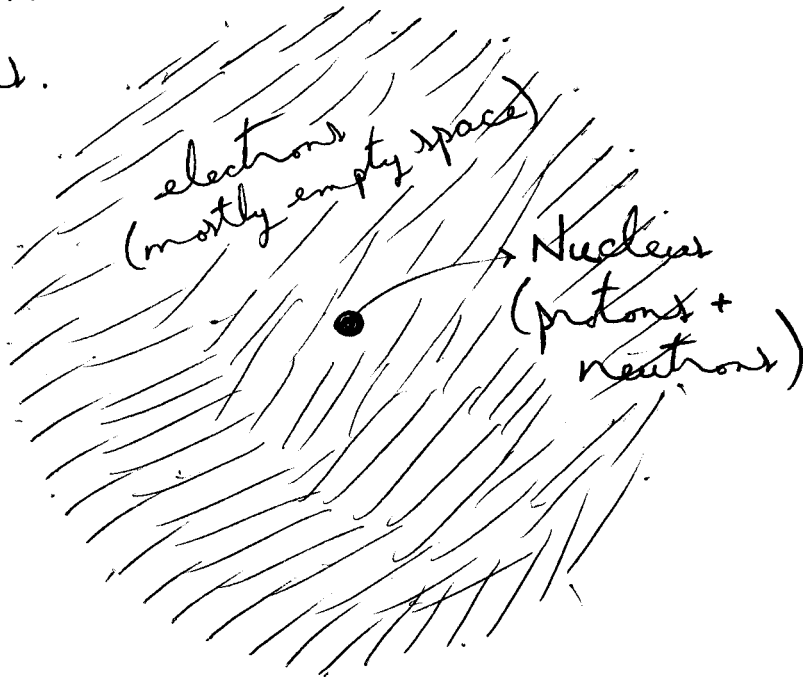 electrons
(mostly empty space)
Nucleus
(protons +
neutrons)